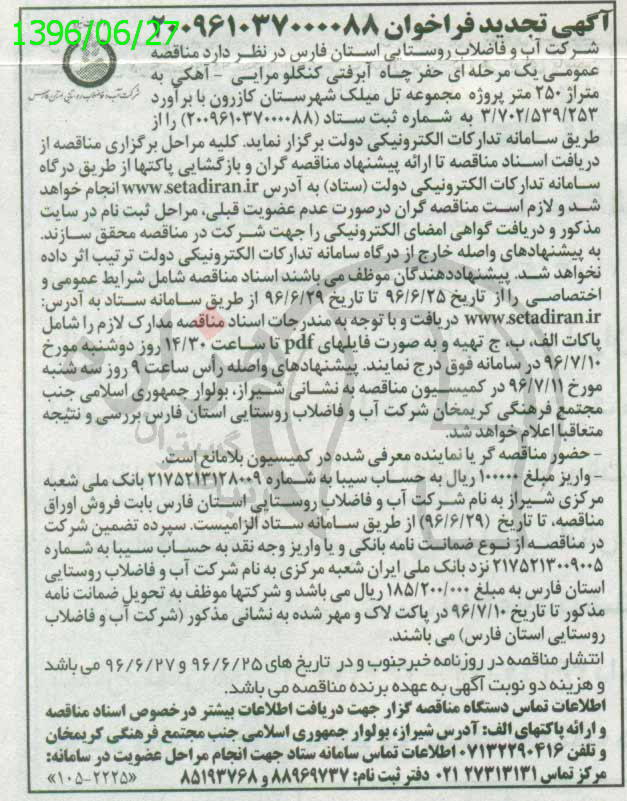 1396/06/27
آگهی تجدید فراخوان ۲۰۰۹۶۱۰۳۷۰۰۰۰۸۸
شرکت آب و فاضلاب روستایی استان فارس در نظر دارد مناقصه
عمومی یک مرحله ای حفر چاه آبرفتی کنگلومرایی - آهکی به
متراژ ۲۵۰ متر پروژه مجموعه تل میلک شهرستان کازرون با برآورد
۳/۷۰۲/۵۳۹/۲۵۳ به شماره ثبت ستاد (۲۰۰۹۶۱۰۳۷۰۰۰۰۸۸) را از
شرکت آب و فاضلاب روستایی استان فارس
طریق سامانه تدارکات الکترونیکی دولت برگزار نماید. کلیه مراحل برگزاری مناقصه از
دریافت اسناد مناقصه تا ارائه پیشنهاد مناقصه گران و بازگشایی پاکتها از طریق درگاه
سامانه تدارکات الکترونیکی دولت (ستاد) به آدرس www.setadiran.ir انجام خواهد
شد و لازم است مناقصه گران درصورت عدم عضویت قبلی، مراحل ثبت نام در سایت
مذکور و دریافت گواهی امضای الکترونیکی را جهت شرکت در مناقصه محقق سازند.
به پیشنهادهای واصله خارج از درگاه سامانه تدارکات الکترونیکی دولت ترتیب اثر داده
نخواهد شد. پیشنهاددهندگان موظف می باشند اسناد مناقصه شامل شرایط عمومی و
اختصاصی را از تاریخ ۹۶/۶/۲۵ تا تاریخ ۹۶/۶/۲۹ از طریق سامانه ستاد به آدرس:
www.setadiran.ir دریافت و با توجه به مندرجات اسناد مناقصه مدارک لازم را شامل
پاکات الف، ب، ج تهیه و به صورت فایلهای pdf تا ساعت ۱۴/۳۰ روز دوشنبه مورخ
۹۶/۷/۱۰ در سامانه فوق درج نمایند. پیشنهادهای واصله رأس ساعت ۹ روز سه شنبه
مورخ ۹۶/۷/۱۱ در کمیسیون مناقصه به نشانی شیراز، بولوار جمهوری اسلامی جنب
مجتمع فرهنگی کریمخان شرکت آب و فاضلاب روستایی استان فارس بررسی و نتیجه
متعاقبا اعلام خواهد شد.
- حضور مناقصه گر یا نماینده معرفی شده در کمیسیون بلامانع است.
- واریز مبلغ ۱۰۰۰۰۰ ریال به حساب سیبا به شماره ۲۱۷۵۲۱۳۱۲۸۰۰۹ بانک ملی شعبه
مرکزی شیراز به نام شرکت آب و فاضلاب روستایی استان فارس بابت فروش اوراق
مناقصه، تا تاریخ (۹۶/۶/۲۹) از طریق سامانه ستاد الزامیست. سپرده تضمین شرکت
در مناقصه از نوع ضمانت نامه بانکی و یا واریز وجه نقد به حساب سیبا به شماره
۲۱۷۵۲۱۳۰۰۹۰۰۵ نزد بانک ملی ایران شعبه مرکزی به نام شرکت آب و فاضلاب روستایی
استان فارس به مبلغ ۱۸۵/۲۰۰/۰۰۰ ریال می باشد و شرکتها موظف به تحویل ضمانت نامه
مذکور تا تاریخ ۹۶/۷/۱۰ در پاکت لاک و مهر شده به نشانی مذکور (شرکت آب و فاضلاب
روستایی استان فارس) می باشند.
انتشار مناقصه در روزنامه خبرجنوب و در تاریخ های ۹۶/۶/۲۵ و ۹۶/۶/۲۷ می باشد
و هزینه دو نوبت آگهی به عهده برنده مناقصه می باشد.
اطلاعات تماس دستگاه مناقصه گزار جهت دریافت اطلاعات بیشتر درخصوص اسناد مناقصه
و ارائه پاکتهای الف: آدرس شیراز، بولوار جمهوری اسلامی جنب مجتمع فرهنگی کریمخان
و تلفن ۰۷۱۳۲۲۹۰۴۱۶ اطلاعات تماس سامانه ستاد جهت انجام مراحل عضویت در سامانه:
مرکز تماس ۲۷۳۱۳۱۳۱ ۰۲۱ دفتر ثبت نام: ۸۸۹۶۹۷۳۷ و ۸۵۱۹۳۷۶۸ «۱۰۵-۲۲۲۵»